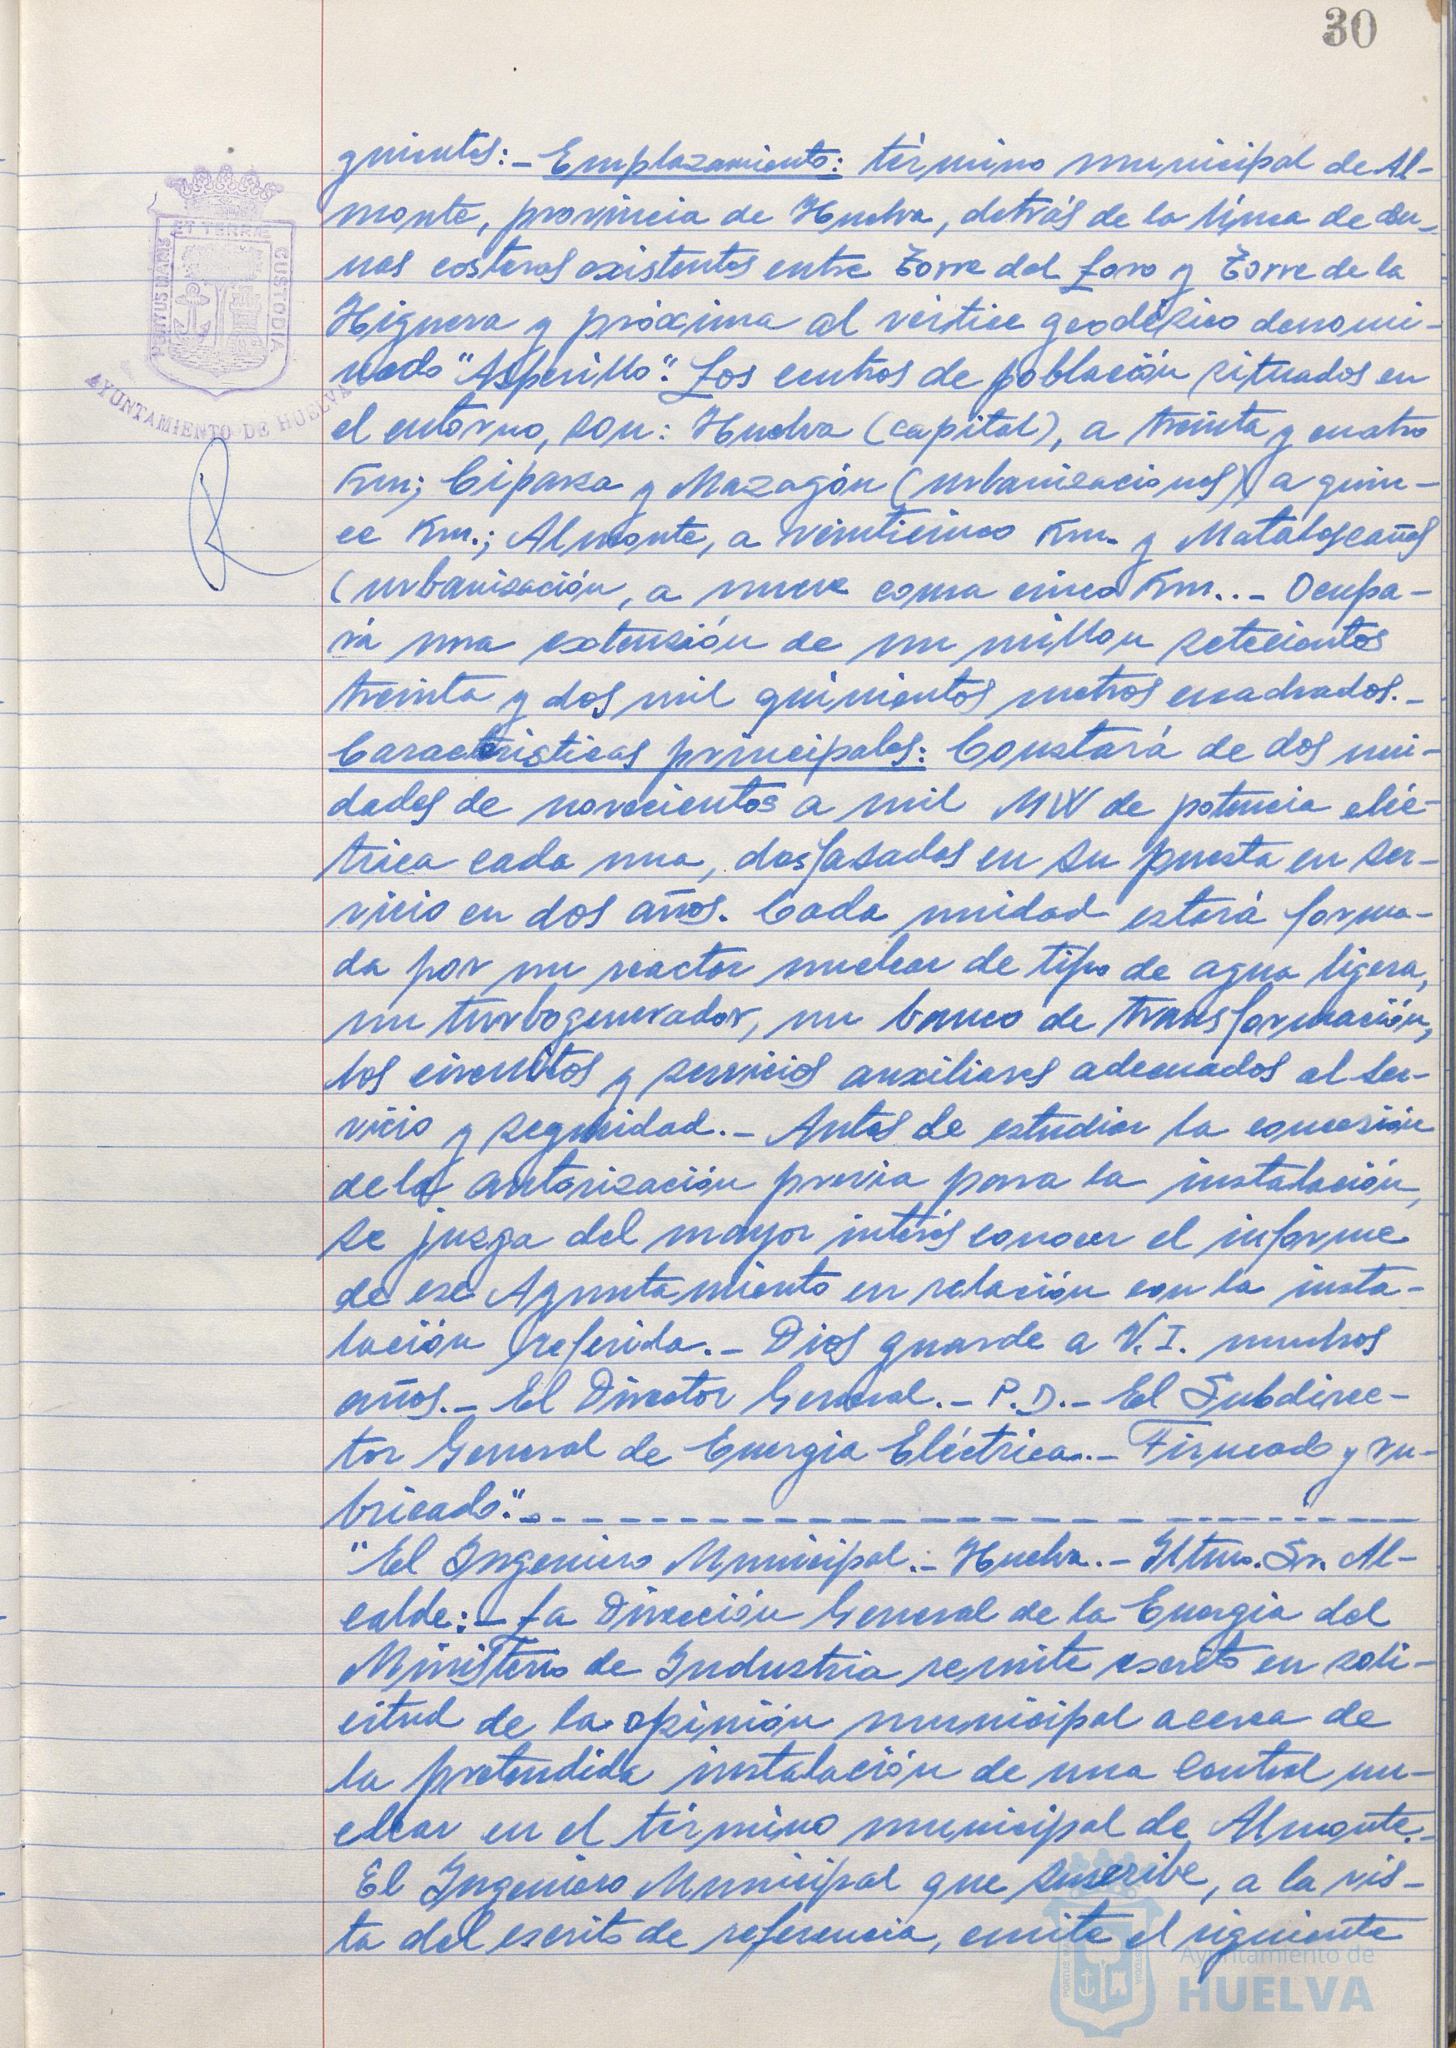 30
PORTUS MARIS
ET TERRÆ
CUSTODIA
AYUNTAMIENTO DE HUELVA
guientes:- Emplazamiento: término municipal de Al-
monte, provincia de Huelva, detrás de la línea de du-
nas costeras existentes entre Torre del Loro y Torre de la
Higuera y próxima al vértice geodésico denomi-
nado "Asperillo". Los centros de población situados en
el entorno, son: Huelva (capital), a treinta y cuatro
Km; Ciparsa y Mazagón (urbanizaciones), a quin-
ce Km.; Almonte, a veinticinco Km. y Matalascañas
(urbanización, a nueve coma cinco Km..- Ocupa-
rá una extensión de un millon setecientos
treinta y dos mil quinientos metros cuadrados.-
Caracteristicas principales: Constará de dos uni-
dades de novecientos a mil MW de potencia eléc-
trica cada una, desfasadas en su puesta en ser-
vicio en dos años. Cada unidad estará forma-
da por un reactor nuclear de tipo de agua ligera,
un turbogenerador, un banco de transformación,
los circuitos y servicios auxiliares adecuados al ser-
vicio y seguridad.- Antes de estudiar la concesión
de la autorización previa para la instalación,
se juzga del mayor interés conocer el informe
de ese Ayuntamiento en relación con la insta-
lación referida.- Dios guarde a V.I. muchos
años.- El Director General.- P.D.- El Subdirec-
tor General de Energia Eléctrica.- Firmado y ru-
bricado".-
"El Ingeniero Municipal.- Huelva.- Iltmo. Sr. Al-
calde:- La Dirección General de la Energia del
Ministerio de Industria remite escrito en soli-
citud de la opinión municipal acerca de
la pretendida instalación de una Central nu-
clear en el término municipal de Almonte.-
El Ingeniero Municipal que suscribe, a la vis-
ta del escrito de referencia, emite el siguiente
Ayuntamiento de
HUELVA